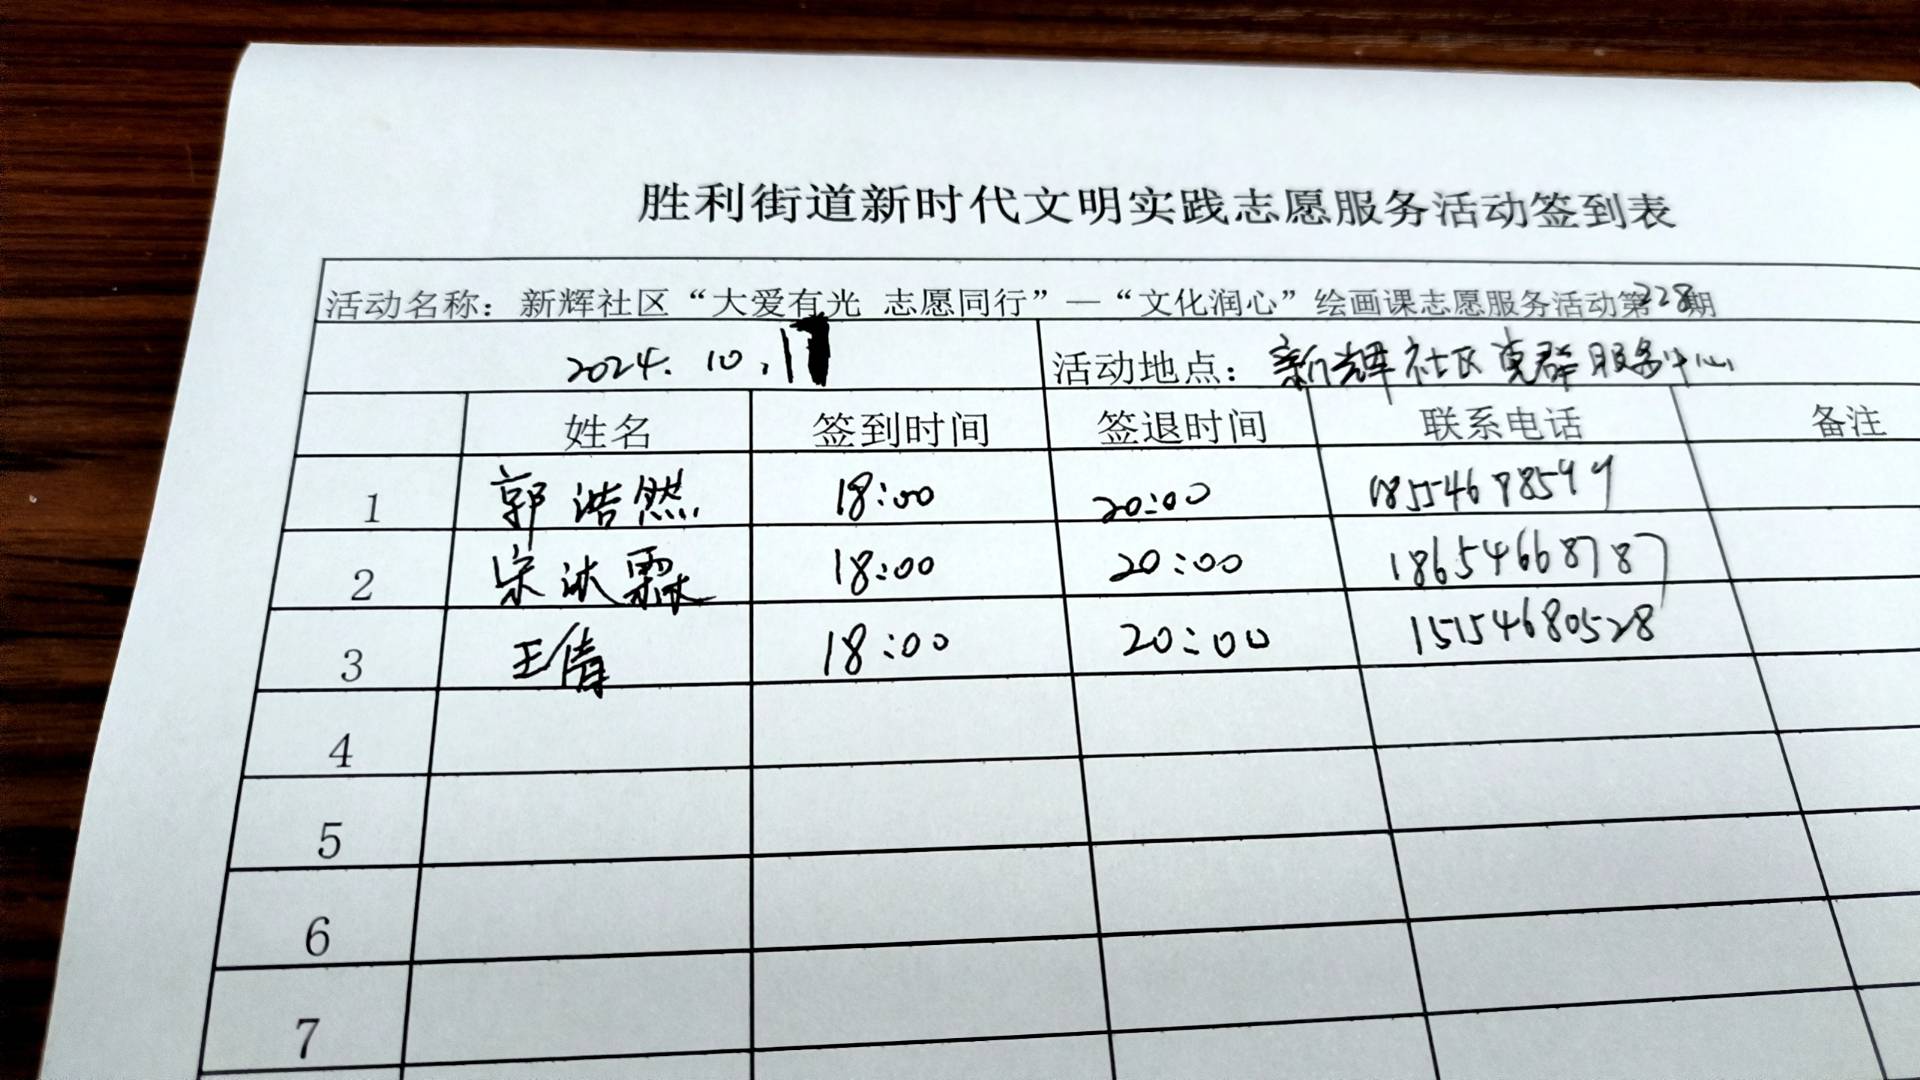 胜利街道新时代文明实践志愿服务活动签到表
活动名称：新辉社区“大爱有光 志愿同行”—“文化润心”绘画课志愿服务活动第228期
2024.10.1 活动地点：新辉社区党群服务中心
姓名 签到时间 签退时间 联系电话 备注
1 郭浩然 18:00 20:00
2 宋冰霖 18:00 20:00 18654668787
3 王倩 18:00 20:00 15154680528
4
5
6
7